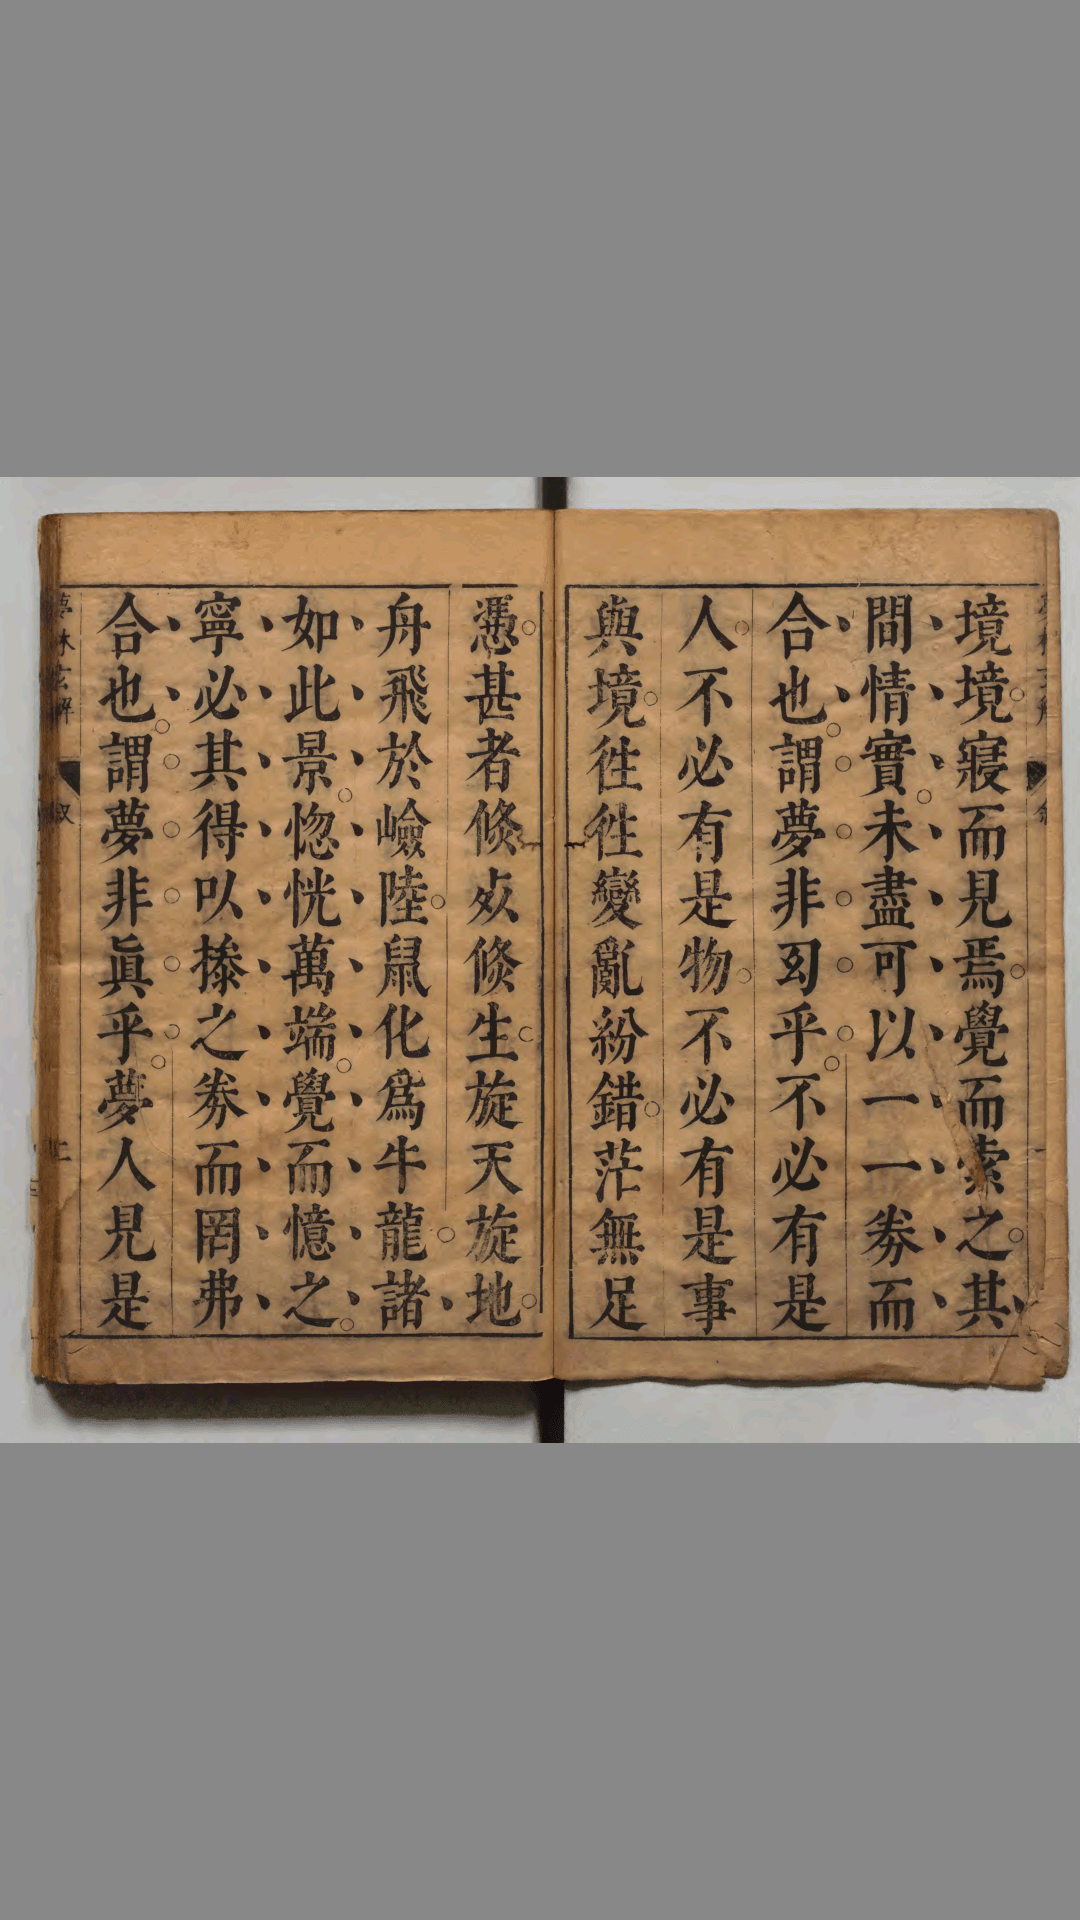 境境寢而見焉覺而索之其
間情實未盡可以一一券而
合也謂夢非幻乎不必有是
人不必有是物不必有是事
與境徃徃變亂紛錯茫無足
憑甚者倐㱁倐生旋天旋地
舟飛於嶮陸鼠化爲牛龍諸
如此景惚恍萬端覺而憶之
寧必其得㕥搽之券而罔弗
合也謂夢非眞乎夢人見是
夢林玄解